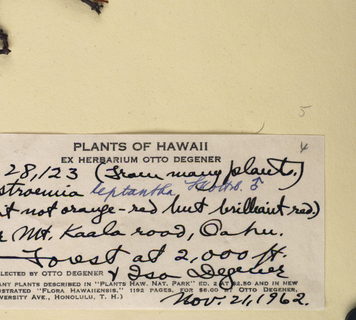 5
4
PLANTS OF HAWAII
EX HERBARIUM OTTO DEGENER
28,123 (From many plants.)
stroemia leptantha
it not orange-red but brilliant red.)
Mt. Kaala road, Oahu.
Forest at 2,000 ft.
LECTED BY OTTO DEGENER & Isa Degener
ANY PLANTS DESCRIBED IN "PLANTS HAW. NAT. PARK" ED. 2 AT $2.50 AND IN NEW
USTRATED "FLORA HAWAIIENSIS," 1192 PAGES, FOR $6.00 BY OTTO DEGENER,
VERSITY AVE., HONOLULU, T. H.) Nov. 21, 1962.